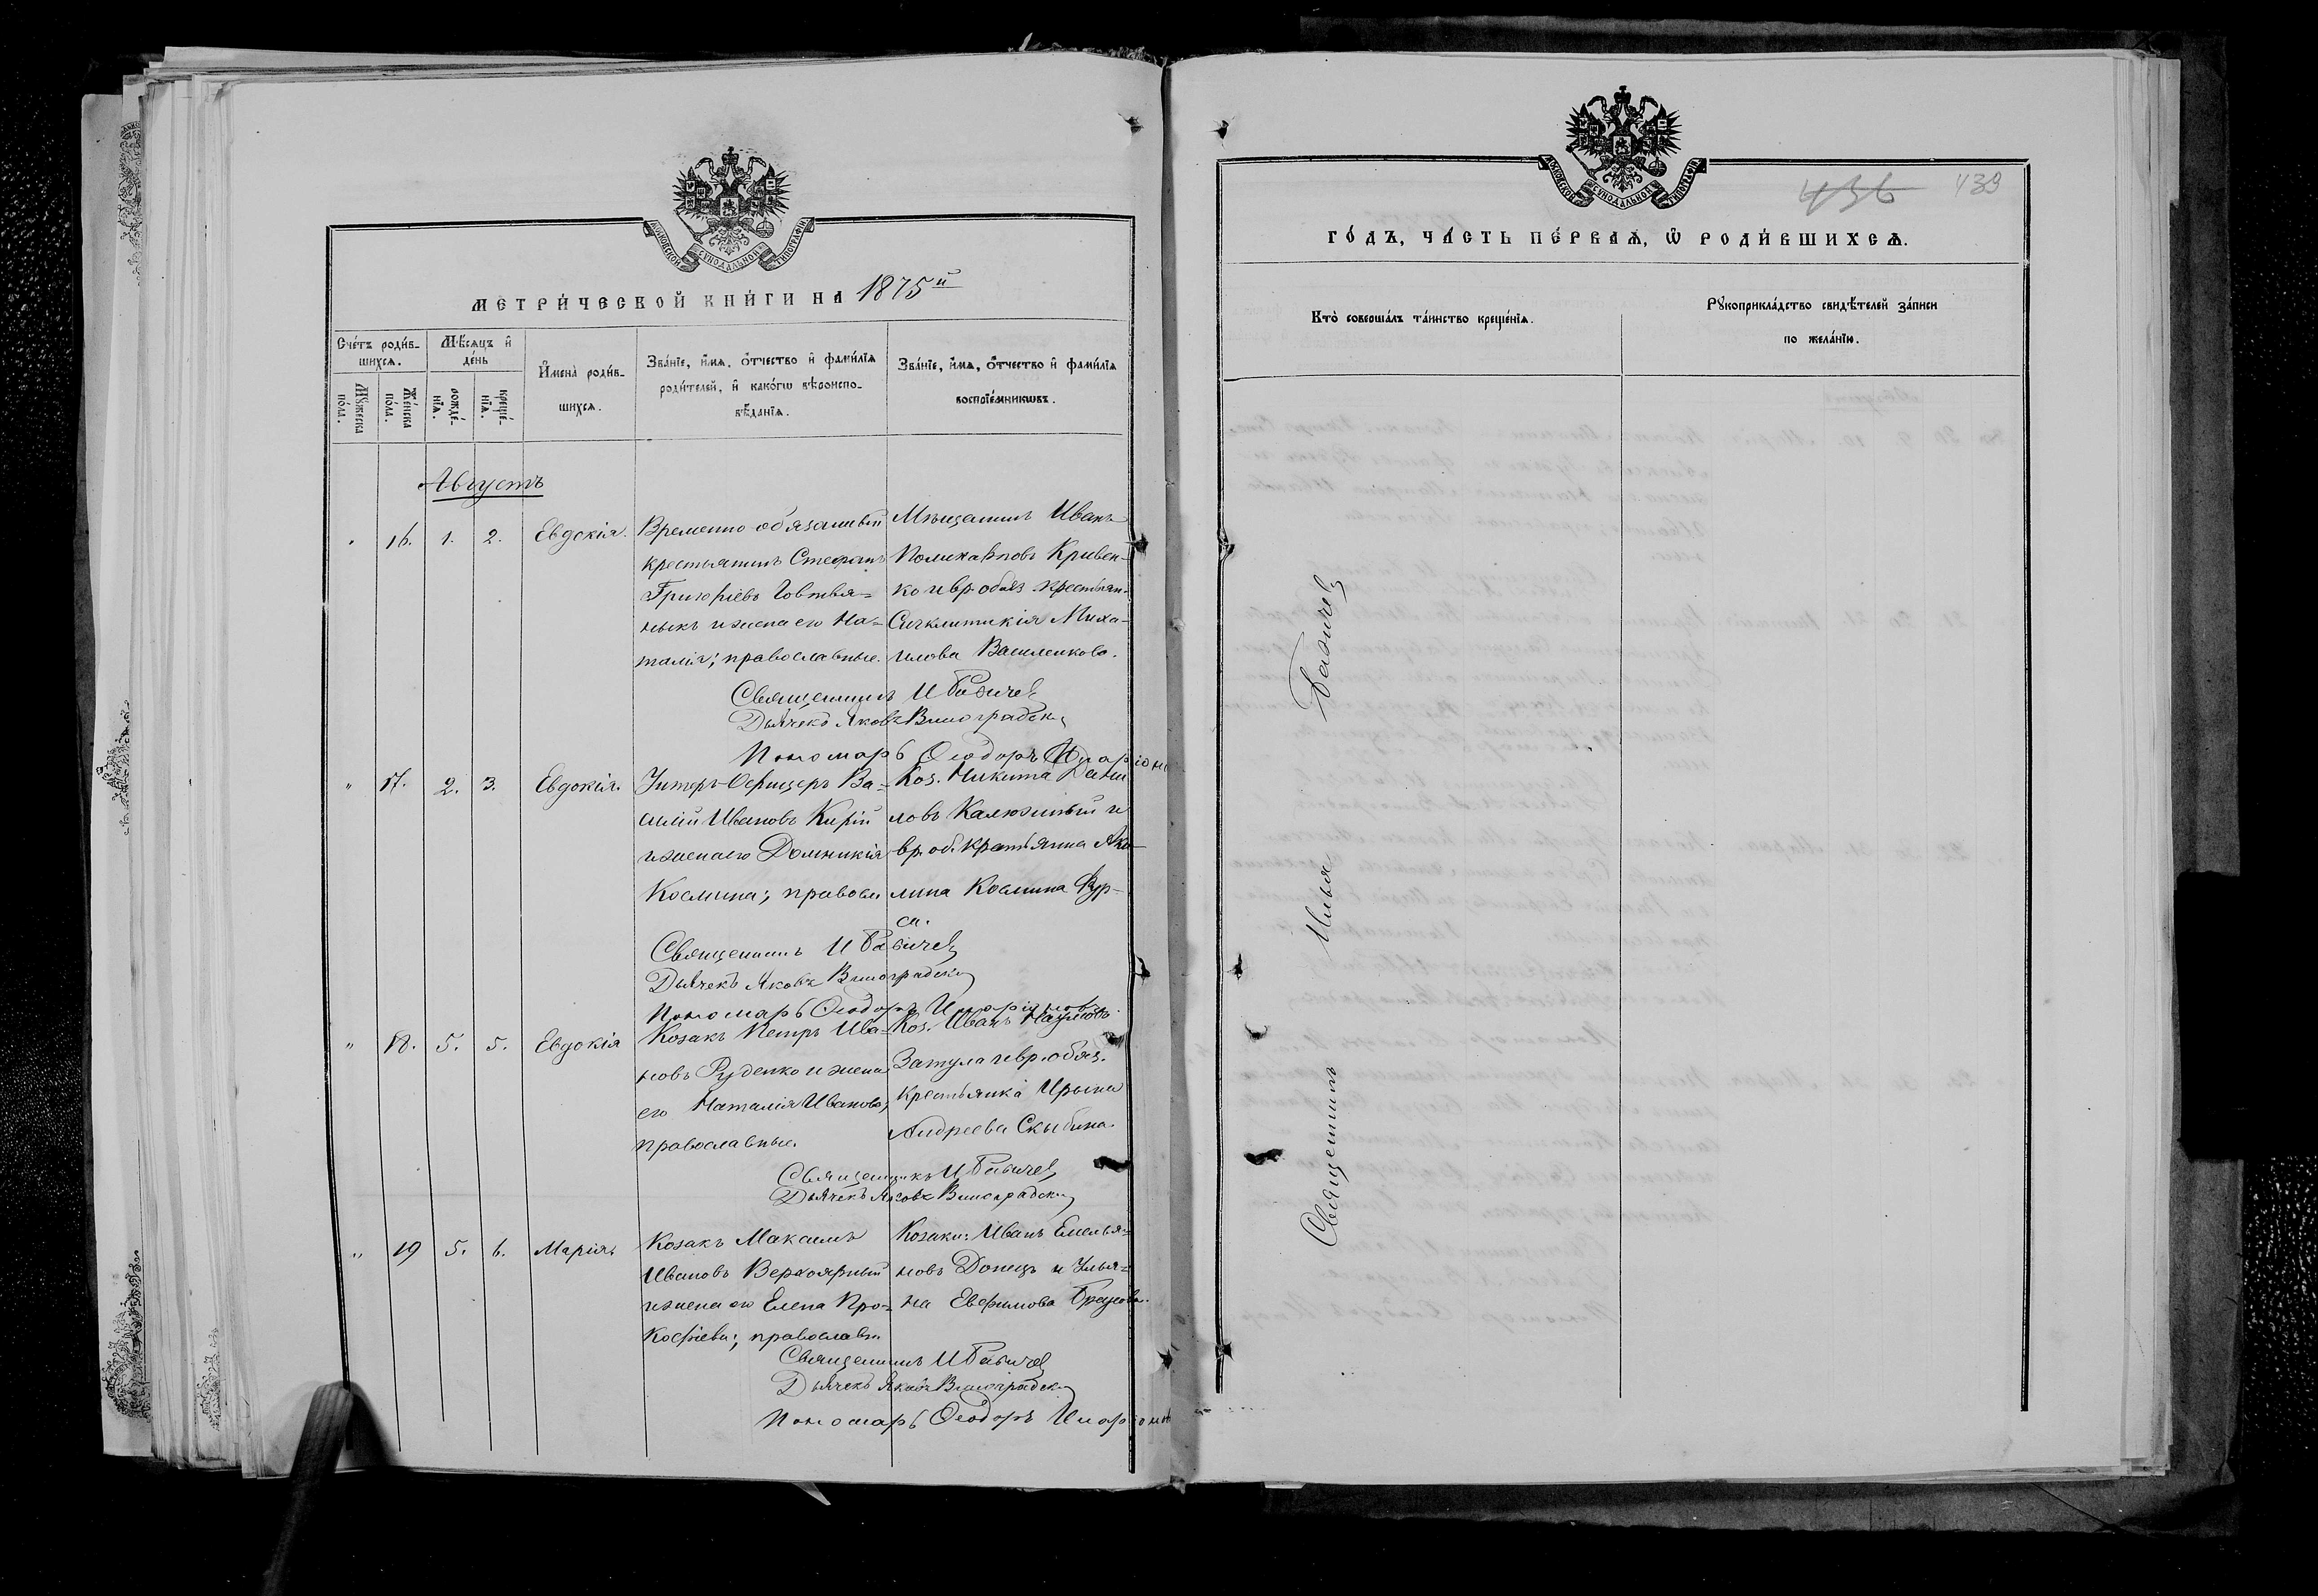 МОСКОВСКОЙ СѴНОДАЛЬНОЙ ТИПОГРАФІИ
МЕТРИ́ЧЕСКОЙ КНИ́ГИ НА 1875й
Сче́тъ роди́в-
шихся.
Мѣ́сяцъ и҆
де́нь
И҆мена̀ роди́в-
шихся.
Зва́нїе, и҆́мя, ѻ҆́тчество и҆ фами́лїя
роди́телей, и҆ како́гѡ вѣ́роиспо-
вѣ́данїя.
Зва́нїе, и҆́мя, ѻ҆́тчество и҆ фами́лїя
воспрїе́мникѡвъ.
Мꙋ́жеска
по́ла.
Же́нска
по́ла.
рожде́-
нїя.
креще́-
нїя.
Августъ
16. 1. 2. Евдокія.
Временно-обязанный
крестьянинъ Стефанъ
Григоріевъ
и жена его На=
талія; православные.
Мѣщанинъ Иванъ
Поликарповъ Кривен-
ко и вр. обяз крестьян.
Синклитикія Миха-
илова Василенкова.
Священникъ И Бабичев
Дьячекъ Яковъ Виноградски
Пономарь Ѳеодоръ Иларіонов
" 17. 2. 3. Евдокія.
Унтеръ-Офицеръ Ва=
силій Ивановъ Кирій
и жена его Домникія
Космина; правосл
Коз. Никита Дани
ловъ Калюжный и
вр. об. крестьянка Аку-
лина Космина
са.
Священникъ И Бабичев
Дьячекъ Яковъ Виноградски
Пономарь Ѳеодоръ Иларіонов
" 18. 5. 5. Евдокія
Козакъ Петръ Ива=
новъ Руденко и жена
его Наталія Иванова;
православные.
Коз. Иванъ Наумовъ
Затула и вр. обяз.
крестьянка Ирына
Андреева Скибина.
Священникъ И Бабичев
Дьячекъ Яковъ Виноградски
" 19 5. 6. Марія.
Козакъ Максимъ
Ивановъ Верхоярный
и жена его Елена Про=
кофіева; православн
Козаки: Иванъ Емелья=
новъ Донецъ и Улья=
на Евфимова
Священникъ И Бабичев
Дьячекъ Яковъ Виноградски
Пономарь Ѳеодоръ Иларіонов
МОСКОВСКОЙ СѴНОДАЛЬНОЙ ТИПОГРАФІИ
436 439
ГО́ДЪ, ЧА́СТЬ ПЕ́РВАЯ, Ѡ҆ РОДИ́ВШИХСЯ.
Кто̀ соверша́лъ та́инство креще́нїя.
Рꙋкоприкла́дство свидѣ́телей за́писи
по жела́нїю.
Священникъ Илья Бабичев